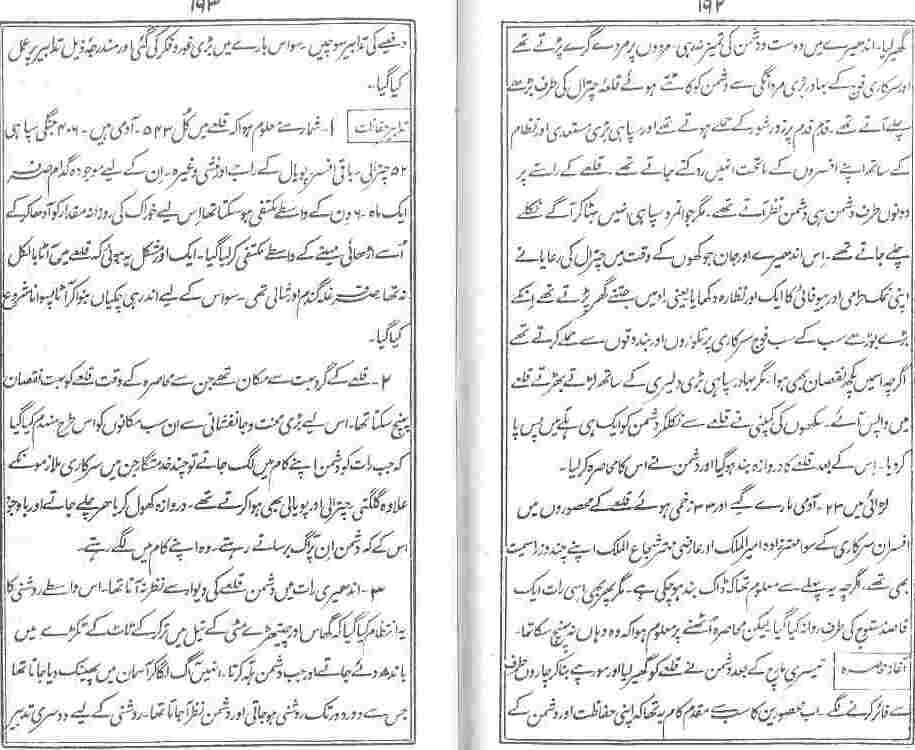 ۱۹۲
گھیر لیا۔ اندھیرے میں دوست و دشمن کی تمیز نہ رہی۔ مردوں پر مردے گرے پڑتے تھے
اور سرکاری فوج کے بہادر بڑی مردانگی سے دشمن کو کاٹتے ہوئے قلعہ چترال کی طرف بڑھے
چلے آتے تھے۔ قدم قدم پر زور شور کے حملے ہوتے تھے اور سپاہی بڑی مستعدی اور نظام
کے ساتھ اپنے افسروں کے ماتحت انہیں روکتے جاتے تھے۔ قلعے کے راستے پر
دونوں طرف دشمن ہی دشمن نظر آتے تھے۔ مگر جوانمرد سپاہی انہیں ہٹا کر آگے نکلتے
چلے جاتے تھے۔ اس اندھیرے اور جان جوکھوں کے وقت میں چترال کی رعایا نے
اپنی نمک حرامی اور بیوفائی کا ایک اور نظارہ دکھایا یعنی راہ میں جتنے گھر پڑتے تھے انکے
بڑے بوڑھے سب کے سب فوج سرکاری پر تلواروں اور بندوقوں سے حملے کرتے تھے
اگرچہ اسمیں کچھ نقصان بھی ہوا۔ مگر بہادر سپاہی بڑی دلیری کے ساتھ لڑتے بھڑتے قلعے
میں واپس آئے۔ سکھوں کی کمپنی نے قلعے سے نکلکر دشمن کو ایک ہی ہلے میں پس پا
کر دیا۔ اس کے بعد قلعے کا دروازہ بند ہو گیا اور دشمن نے اس کا محاصرہ کر لیا۔
لڑائی میں ۲۳۔ آدمی مارے گیے اور ۳۳ زخمی ہوئے قلعے کے محصوروں میں
افسران سرکاری کے سوا مہترزادہ امیر الملک اور عاضی مہتر شجاع الملک اپنے چند وزرا سمیت
بھی تھے، اگرچہ یہ پہلے سے معلوم تھا کہ ڈاک بند ہو چکی ہے۔ مگر پھر بھی اسی رات ایک
قاصد مستوج کی طرف روانہ کیا گیا لیکن محاصرہ اٹھنے پر معلوم ہوا کہ وہ وہاں نہ پہنچ سکا تھا۔
آغاز محاصرہ تیسری مارچ کے بعد دشمن نے قلعے کو گھیر لیا اور مورچے بنا کر چاروں طرف
سے فائر کرنے لگے۔ اب محصورین کا سب سے مقدم کام یہ تھا کہ اپنی حفاظت اور دشمن کے
۱۹۳
دفعیے کی تدابیر سوچیں۔ سو اس بارے میں بڑی غور و فکر کی گئی اور مندرجہ ذیل تدابیر پر عمل
کیا گیا۔
تدابیر حفاظت ۱۔ شمار سے معلوم ہوا کہ قلعے میں کُل ۵۴۳۔ آدمی ہیں۔ ۴۰۶ جنگی سپاہی
۵۲ چترالی۔ باقی افسر پویال کے راجے اور منشی وغیرہ۔ ان کے لیے موجودہ گدام صرف
ایک ماہ ۶۔ دن کے واسطے مکتفی ہو سکتا تھا اس لیے خوراک کی روزانہ مقدار کو آدھا کر کے
اُسے اڑھائی مہینے کے واسطے مکتفی کر لیا گیا۔ ایک اور مشکل یہ ہوئی کہ قلعے میں آٹا بالکل
نہ تھا صرف غلہ گندم اور شالی تھی۔ سو اس کے لیے اندر ہی چکیاں بنوا کر آٹا پسوانا شروع
کیا گیا۔
۲۔ قلعے کے گرد بہت سے مکان تھے جن سے محاصرہ کے وقت قلعے کو بہت نقصان
پہنچ سکتا تھا۔ اس لیے بڑی محنت و جانفشانی سے ان سب مکانوں کو اس طرح منہدم کیا گیا
کہ جب رات کو دشمن اپنے کام میں لگ جاتے تو چند خدمتگار جن میں سرکاری ملازمونکے
علاوہ گلگتی چترالی اور پویالی بھی ہوا کرتے تھے۔ دروازہ کھول کر باہر چلے جاتے اور باوجود
اس کے کہ دشمن ان پر آگ برساتے رہتے۔ وہ اپنے کام میں لگے رہتے۔
۳۔ اندھیری رات میں دشمن قلعے کی دیوار سے نظر نہ آتا تھا۔ اس واسطے روشنی کا
یہ انتظام کیا گیا کہ گھاس اور چیتھڑے مٹی کے تیل میں تر کر کے ٹاٹ کے ٹکڑے میں
باندھ دئے جاتے اور جب دشمن ہلہ کرتا۔ انہیں آگ لگا کر آسمان میں پھینک دیا جاتا تھا
جس سے دور دور تک روشنی ہو جاتی اور دشمن نظر آ جاتا تھا۔ روشنی کے لیے دوسری تدبیر